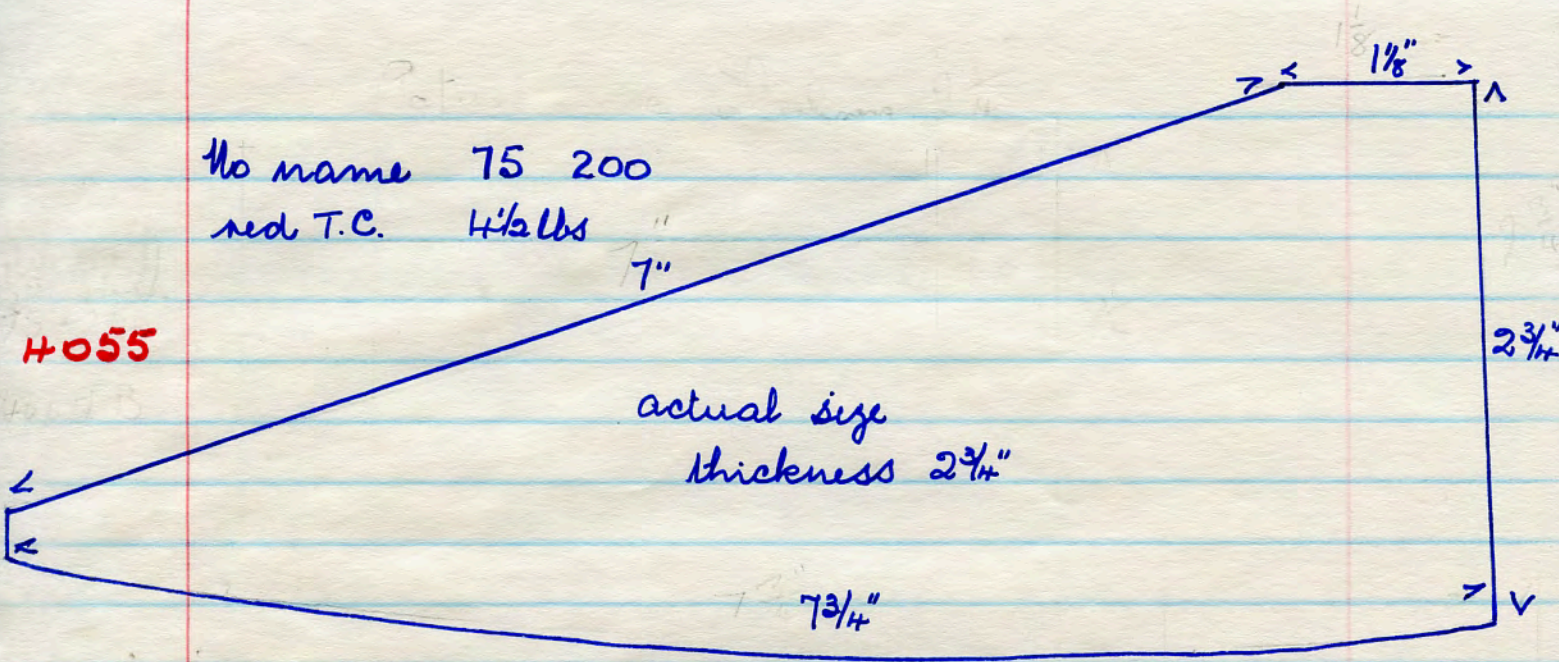 1⅛"
No name 75 200
red T.C. 4½ lbs
7"
4055
2¾"
actual size
thickness 2¾"
7¾"